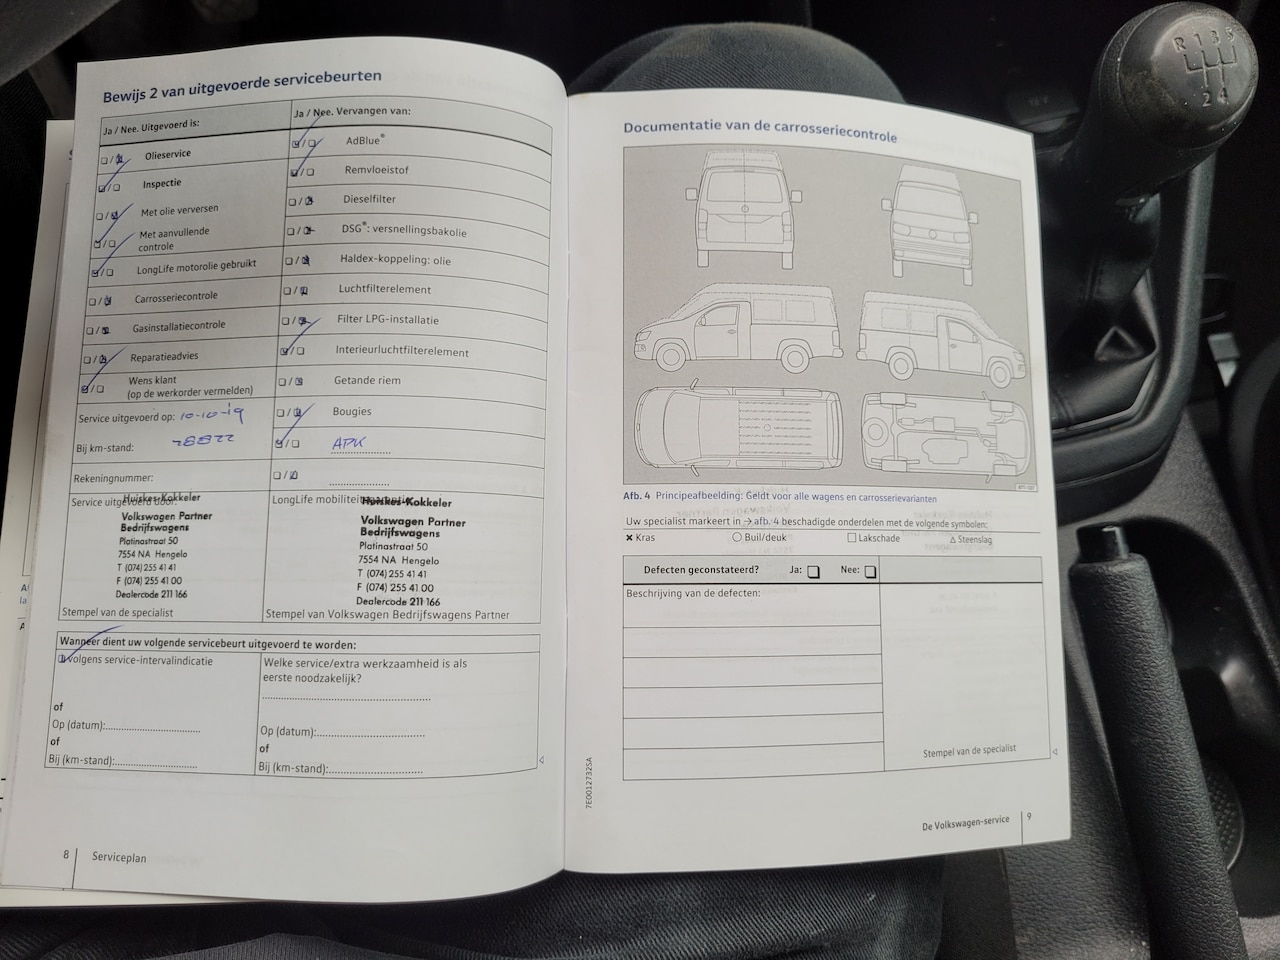 Bewijs 2 van uitgevoerde servicebeurten
Ja / Nee. Uitgevoerd is:
Olieservice
Inspectie
Met olie verversen
Met aanvullende
controle
LongLife motorolie gebruikt
Carrosseriecontrole
Gasinstallatiecontrole
Reparatieadvies
Wens klant
(op de werkorder vermelden)
Service uitgevoerd op: 10-10-19
Bij km-stand: 28822
Rekeningnummer:
Service uitgevoerd door:
Huiskes-Kokkeler
Volkswagen Partner
Bedrijfswagens
Platinastraat 50
7554 NA Hengelo
T (074) 255 41 41
F (074) 255 41 00
Dealercode 211 166
Stempel van de specialist
Ja / Nee. Vervangen van:
AdBlue®
Remvloeistof
Dieselfilter
DSG®: versnellingsbakolie
Haldex-koppeling: olie
Luchtfilterelement
Filter LPG-installatie
Interieurluchtfilterelement
Getande riem
Bougies
APK
LongLife mobiliteitsgarantie
Huiskes-Kokkeler
Volkswagen Partner
Bedrijfswagens
Platinastraat 50
7554 NA Hengelo
T (074) 255 41 41
F (074) 255 41 00
Dealercode 211 166
Stempel van Volkswagen Bedrijfswagens Partner
Wanneer dient uw volgende servicebeurt uitgevoerd te worden:
volgens service-intervalindicatie
of
Op (datum):
of
Bij (km-stand):
Welke service/extra werkzaamheid is als
eerste noodzakelijk?
Op (datum):
of
Bij (km-stand):
8 Serviceplan
Documentatie van de carrosseriecontrole
Afb. 4 Principeafbeelding: Geldt voor alle wagens en carrosserievarianten
Uw specialist markeert in → afb. 4 beschadigde onderdelen met de volgende symbolen:
Kras
Buil/deuk
Lakschade
Steenslag
Defecten geconstateerd? Ja: Nee:
Beschrijving van de defecten:
Stempel van de specialist
7E0012732SA
De Volkswagen-service 9
R 1 3 5
2 4